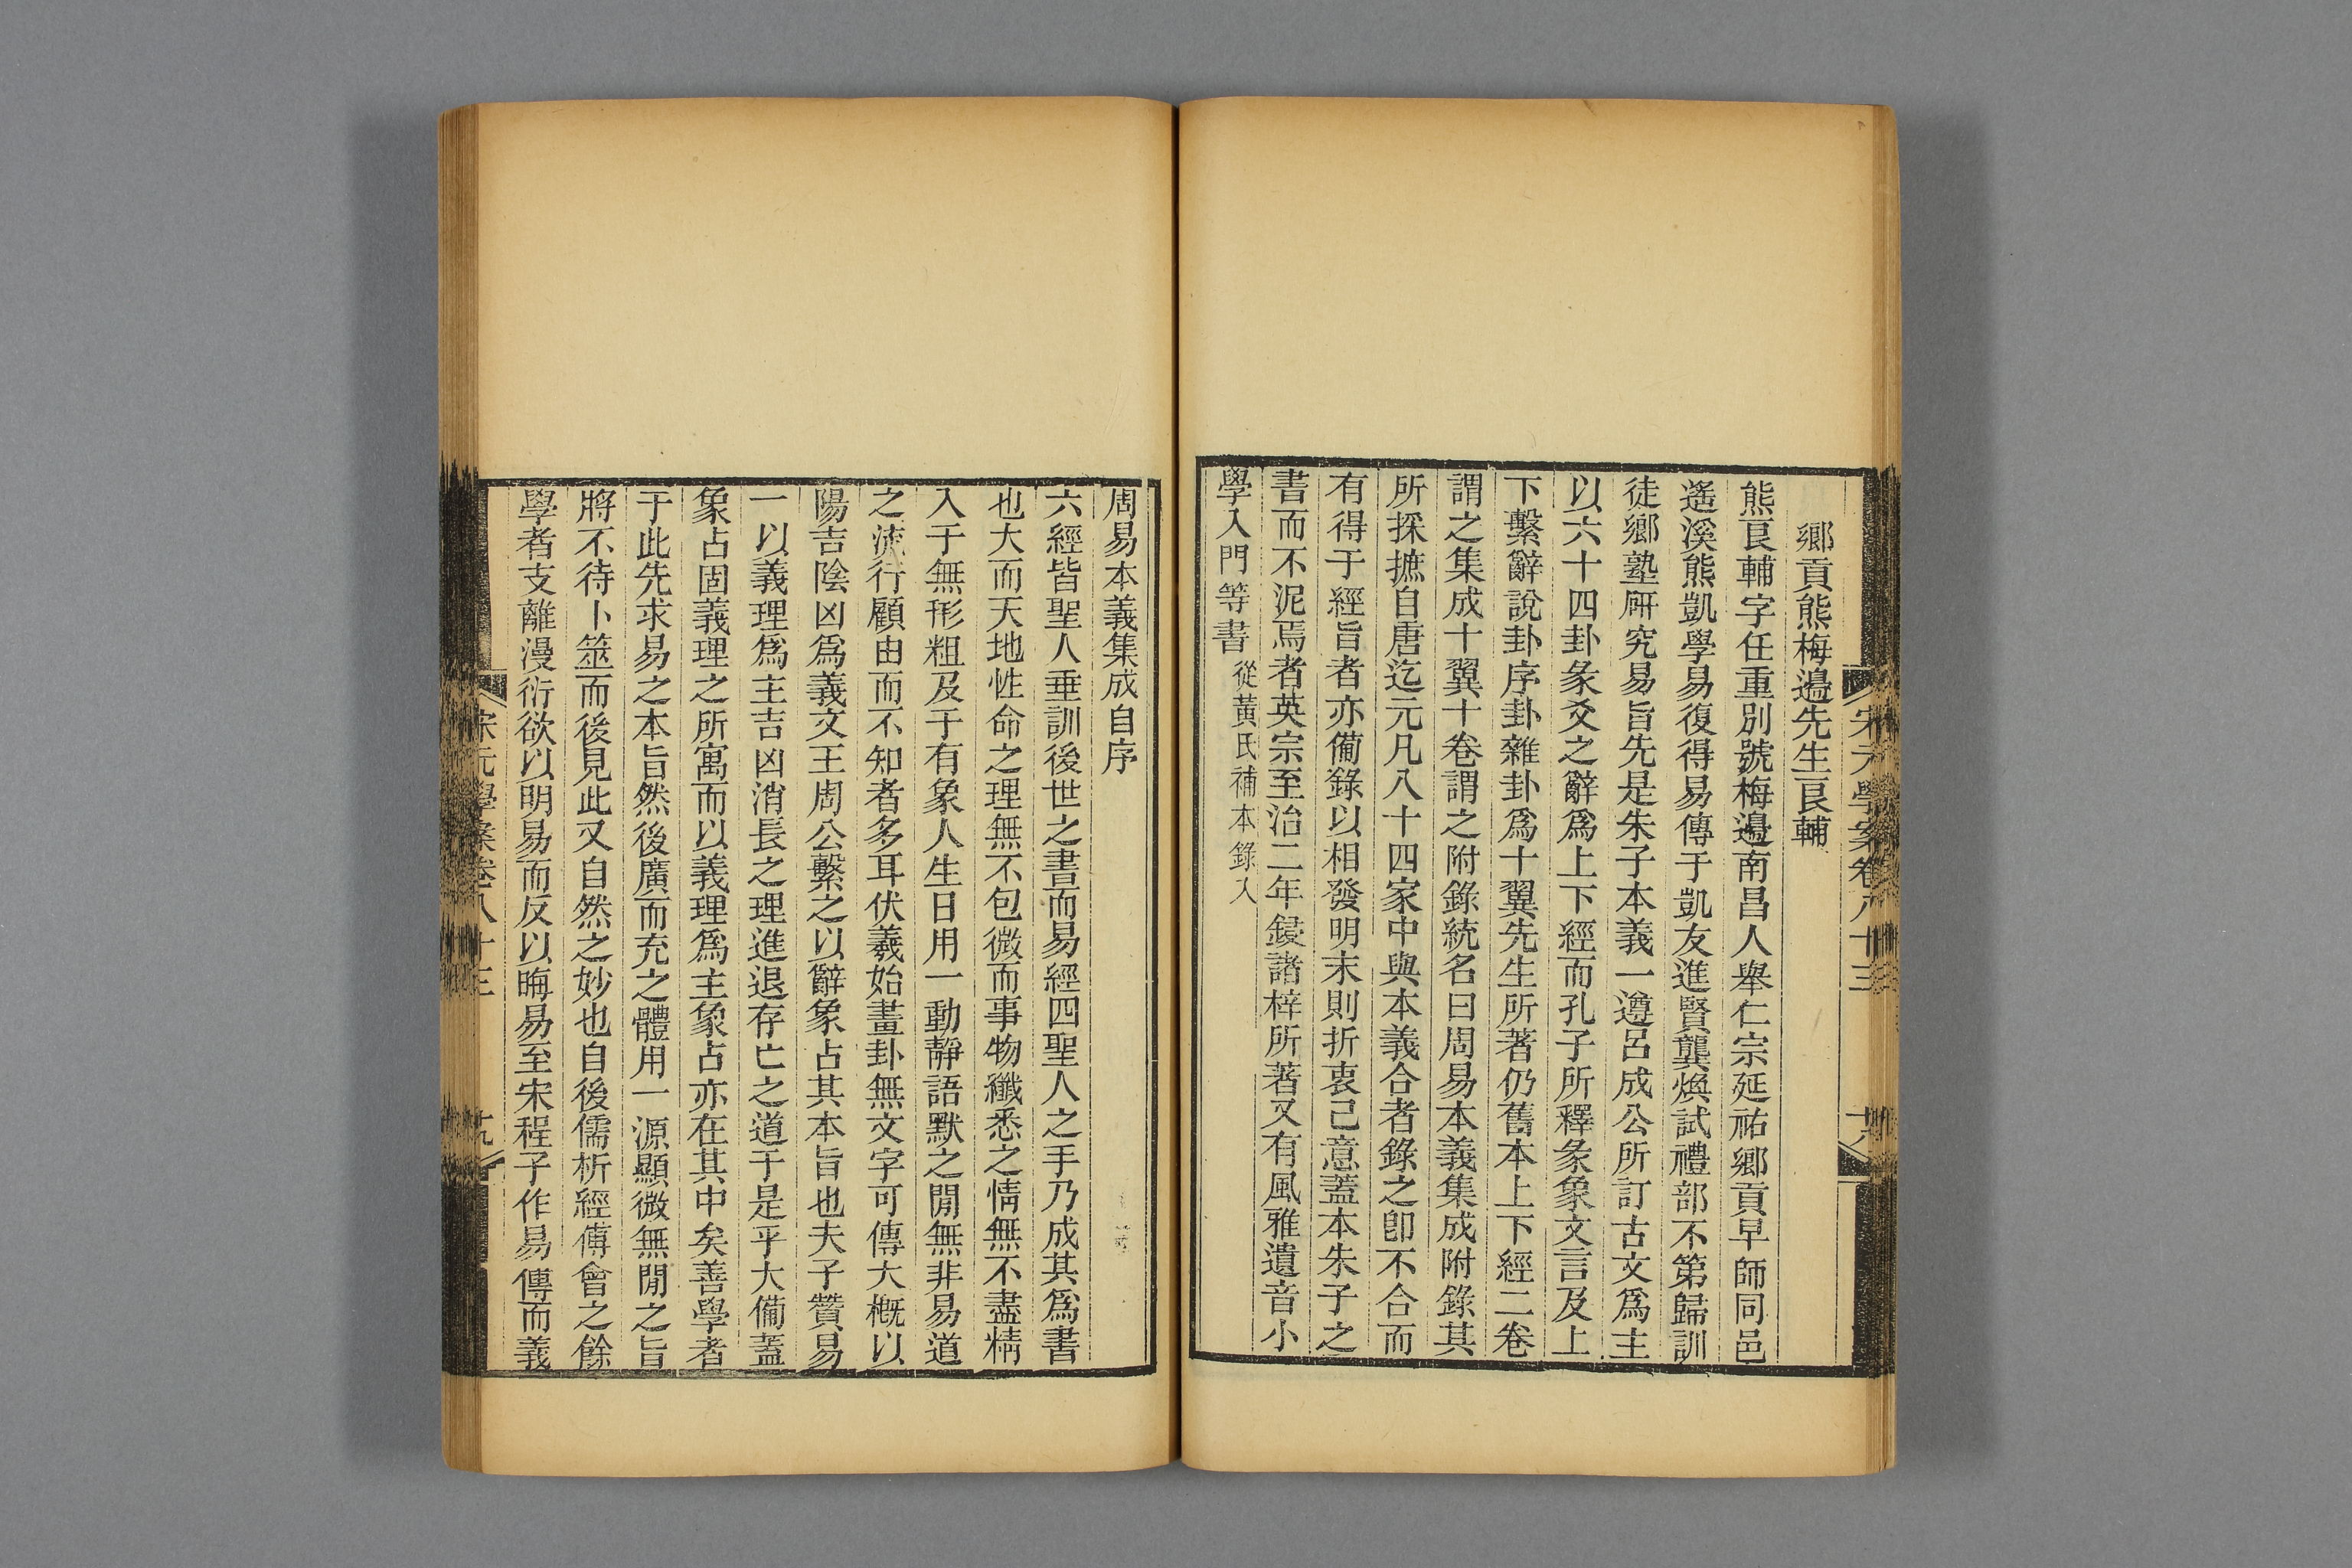 宋元學案卷八十三
十八
鄉貢熊梅邉先生良輔
熊良輔字任重別號梅邉南昌人舉仁宗延祐鄉貢早師同邑
遙溪熊凱學易復得易傳于凱友進賢龔煥試禮部不第歸訓
徒鄉塾硏究易旨先是朱子本義一遵呂成公所訂古文爲主
以六十四卦彖爻之辭爲上下經而孔子所釋彖象文言及上
下繫辭說卦序卦雜卦爲十翼先生所著仍舊本上下經二卷
謂之集成十翼十卷謂之附錄統名曰周易本義集成附錄其
所採摭自唐迄元凡八十四家中與本義合者錄之卽不合而
有得于經旨者亦僃錄以相發明末則折衷己意蓋本朱子之
書而不泥焉者英宗至治二年鋟諸梓所著又有風雅遺音小
學入門等書從黃氏補本錄入
周易本義集成自序
六經皆聖人垂訓後世之書而易經四聖人之手乃成其爲書
也大而天地性命之理無不包微而事物纖悉之情無不盡精
入于無形粗及于有象人生日用一動靜語默之閒無非易道
之流行顧由而不知者多耳伏羲始畫卦無文字可傳大槪以
陽吉陰凶爲義文王周公繫之以辭象占其本旨也夫子贊易
一以義理爲主吉凶消長之理進退存亡之道于是乎大僃蓋
象占固義理之所寓而以義理爲主象占亦在其中矣善學者
于此先求易之本旨然後廣而充之體用一源顯微無閒之旨
將不待卜筮而後見此又自然之妙也自後儒析經傅會之餘
學者支離漫衍欲以明易而反以晦易至宋程子作易傳而義
宋元學案卷八十三